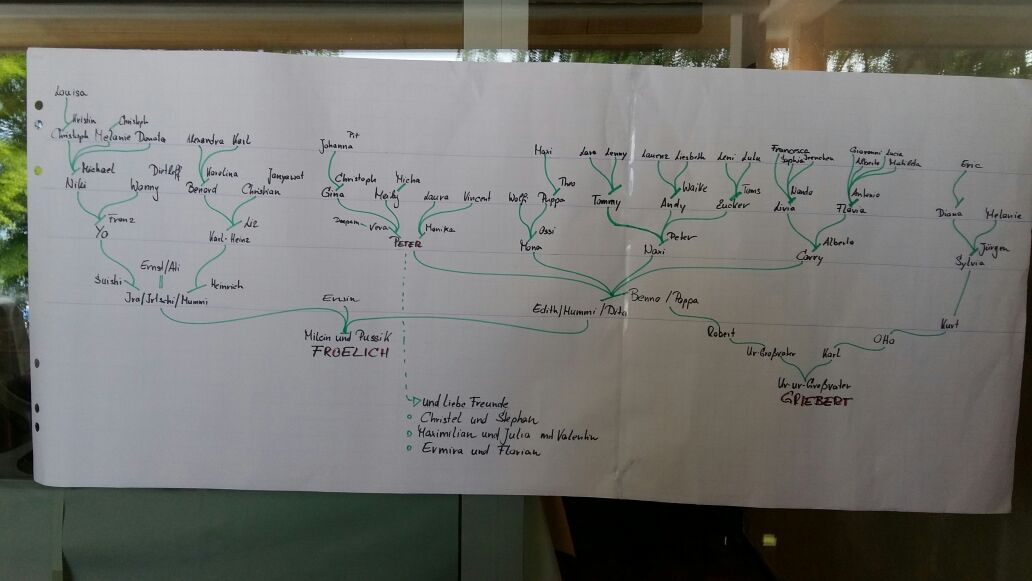 Louisa
Kristin Christoph
Christoph Melanie Donata
Alexandra Karl
Pit
Johanna
Maxi
Lara Lenny
Laurenz Liesbeth
Leni Lulu
Francesca
Sophia
Giovanni Lucia
Alberto Mathilda
Eric
Michael
Niki
Wanny
Detleff
Karolina
Benord
Christian
Janyawat
Christoph
Gina
Micha
Meiky
Laura Vincent
Theo
Wolfi Puppa
Tommy
Waike
Andy
Toms
Zucker
Nando
Livia
Antonio
Flavia
Diana Melanie
Franz
Yo
Liz
Karl-Heinz
Vera
Monika
PETER
Ossi
Mona
Peter
Naxi
Alberto
Carry
Jürgen
Sylvia
Suishi
Ernst/Ali
Heinrich
Ira/Irtschi/Mummi
Erwin
Edith/Mummi/Dita
Benno/Poppa
Robert
Otto
Kurt
Milein und Pussik
FROELICH
Ur-Großvater
Karl
Ur-ur-Großvater
GRIEBERT
und liebe Freunde
Christel und Stephan
Maximilian und Julia mit Valentin
Ermira und Florian